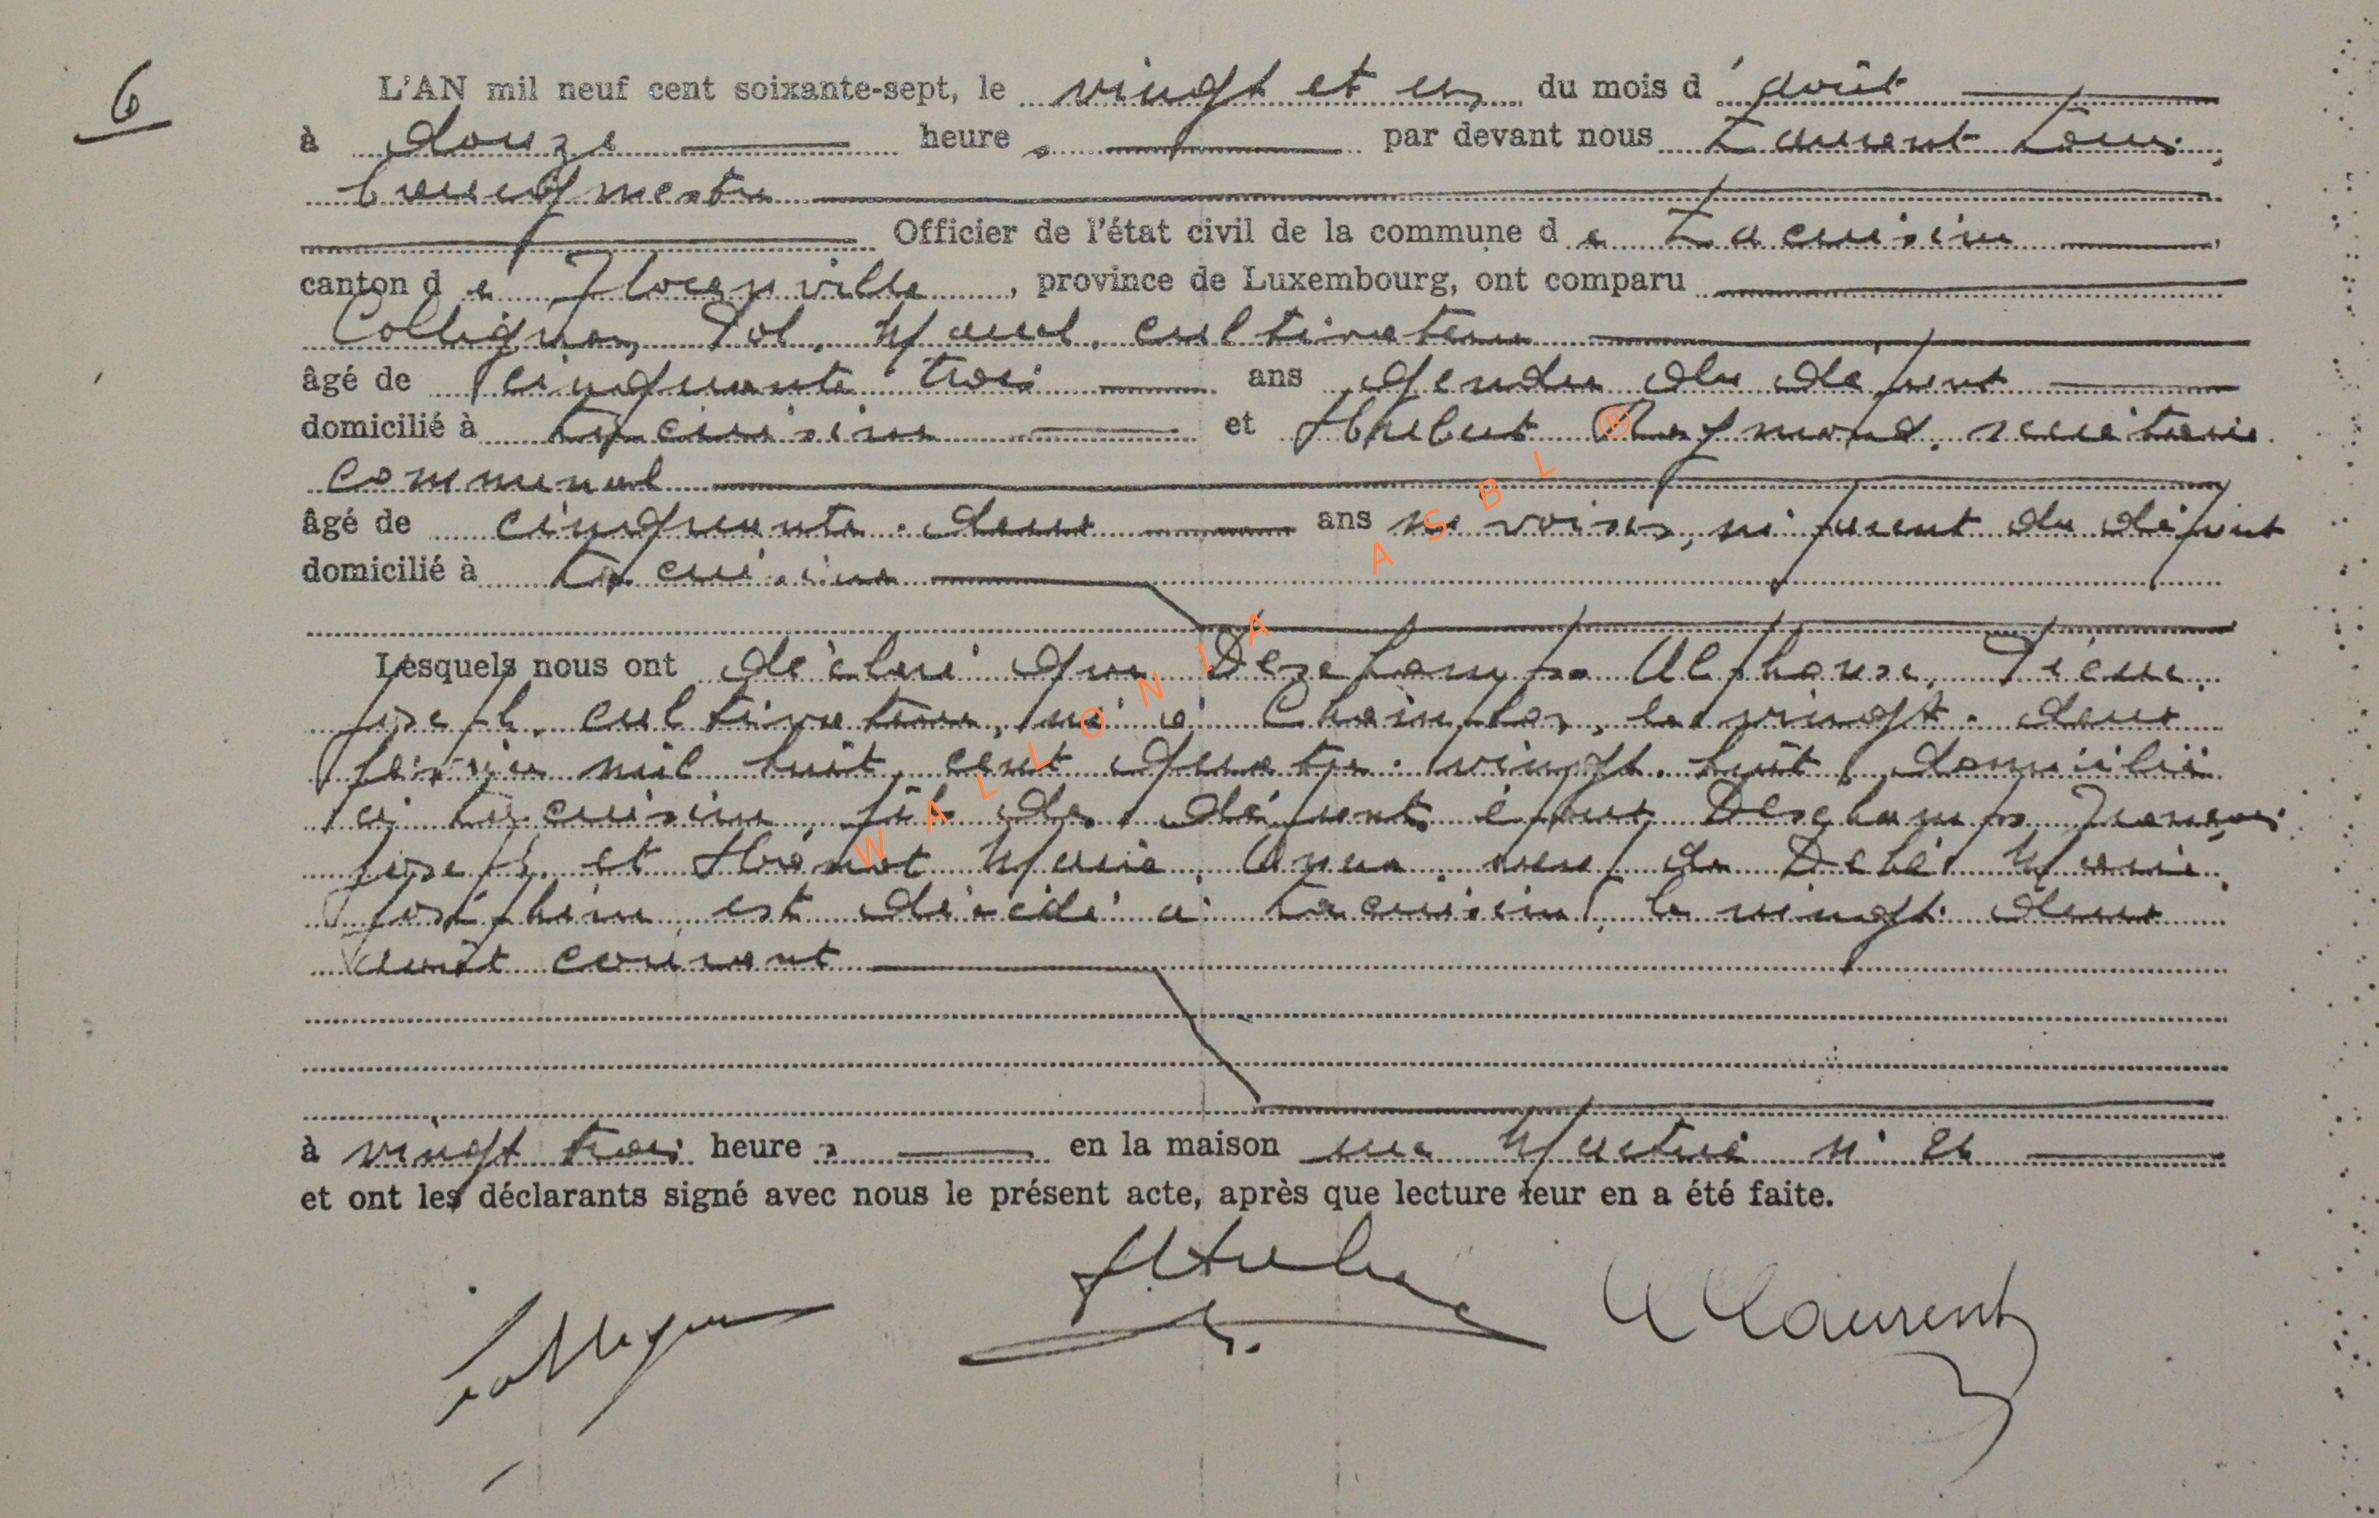 6
L'AN mil neuf cent soixante-sept, le vingt et un du mois d'août
à douze heures par devant nous Laurent Louis,
bourgmestre
Officier de l'état civil de la commune de Lacuisine,
canton de Florenville, province de Luxembourg, ont comparu
Collignon, Pol, Marcel, cultivateur
âgé de cinquante trois ans gendre du défunt
domicilié à Lacuisine et Hubert Raymond, secrétaire
communal
âgé de cinquante-deux ans ni voisin, ni parent du défunt
domicilié à Lacuisine
Lesquels nous ont déclaré que Deschamps Alphonse, Pierre,
Joseph, cultivateur, né à le vingt-deux
février mil huit cent quatre-vingt-huit, domicilié
à Lacuisine, fils des défunts époux Deschamps François
Joseph et Marie, Anna, veuf de Marie,
Joséphine, est décédé à Lacuisine, le vingt deux
août courant
à vingt trois heures en la maison rue n°
et ont les déclarants signé avec nous le présent acte, après que lecture leur en a été faite.
Collignon Hubert L Laurent
WALLONIA ASBL ®